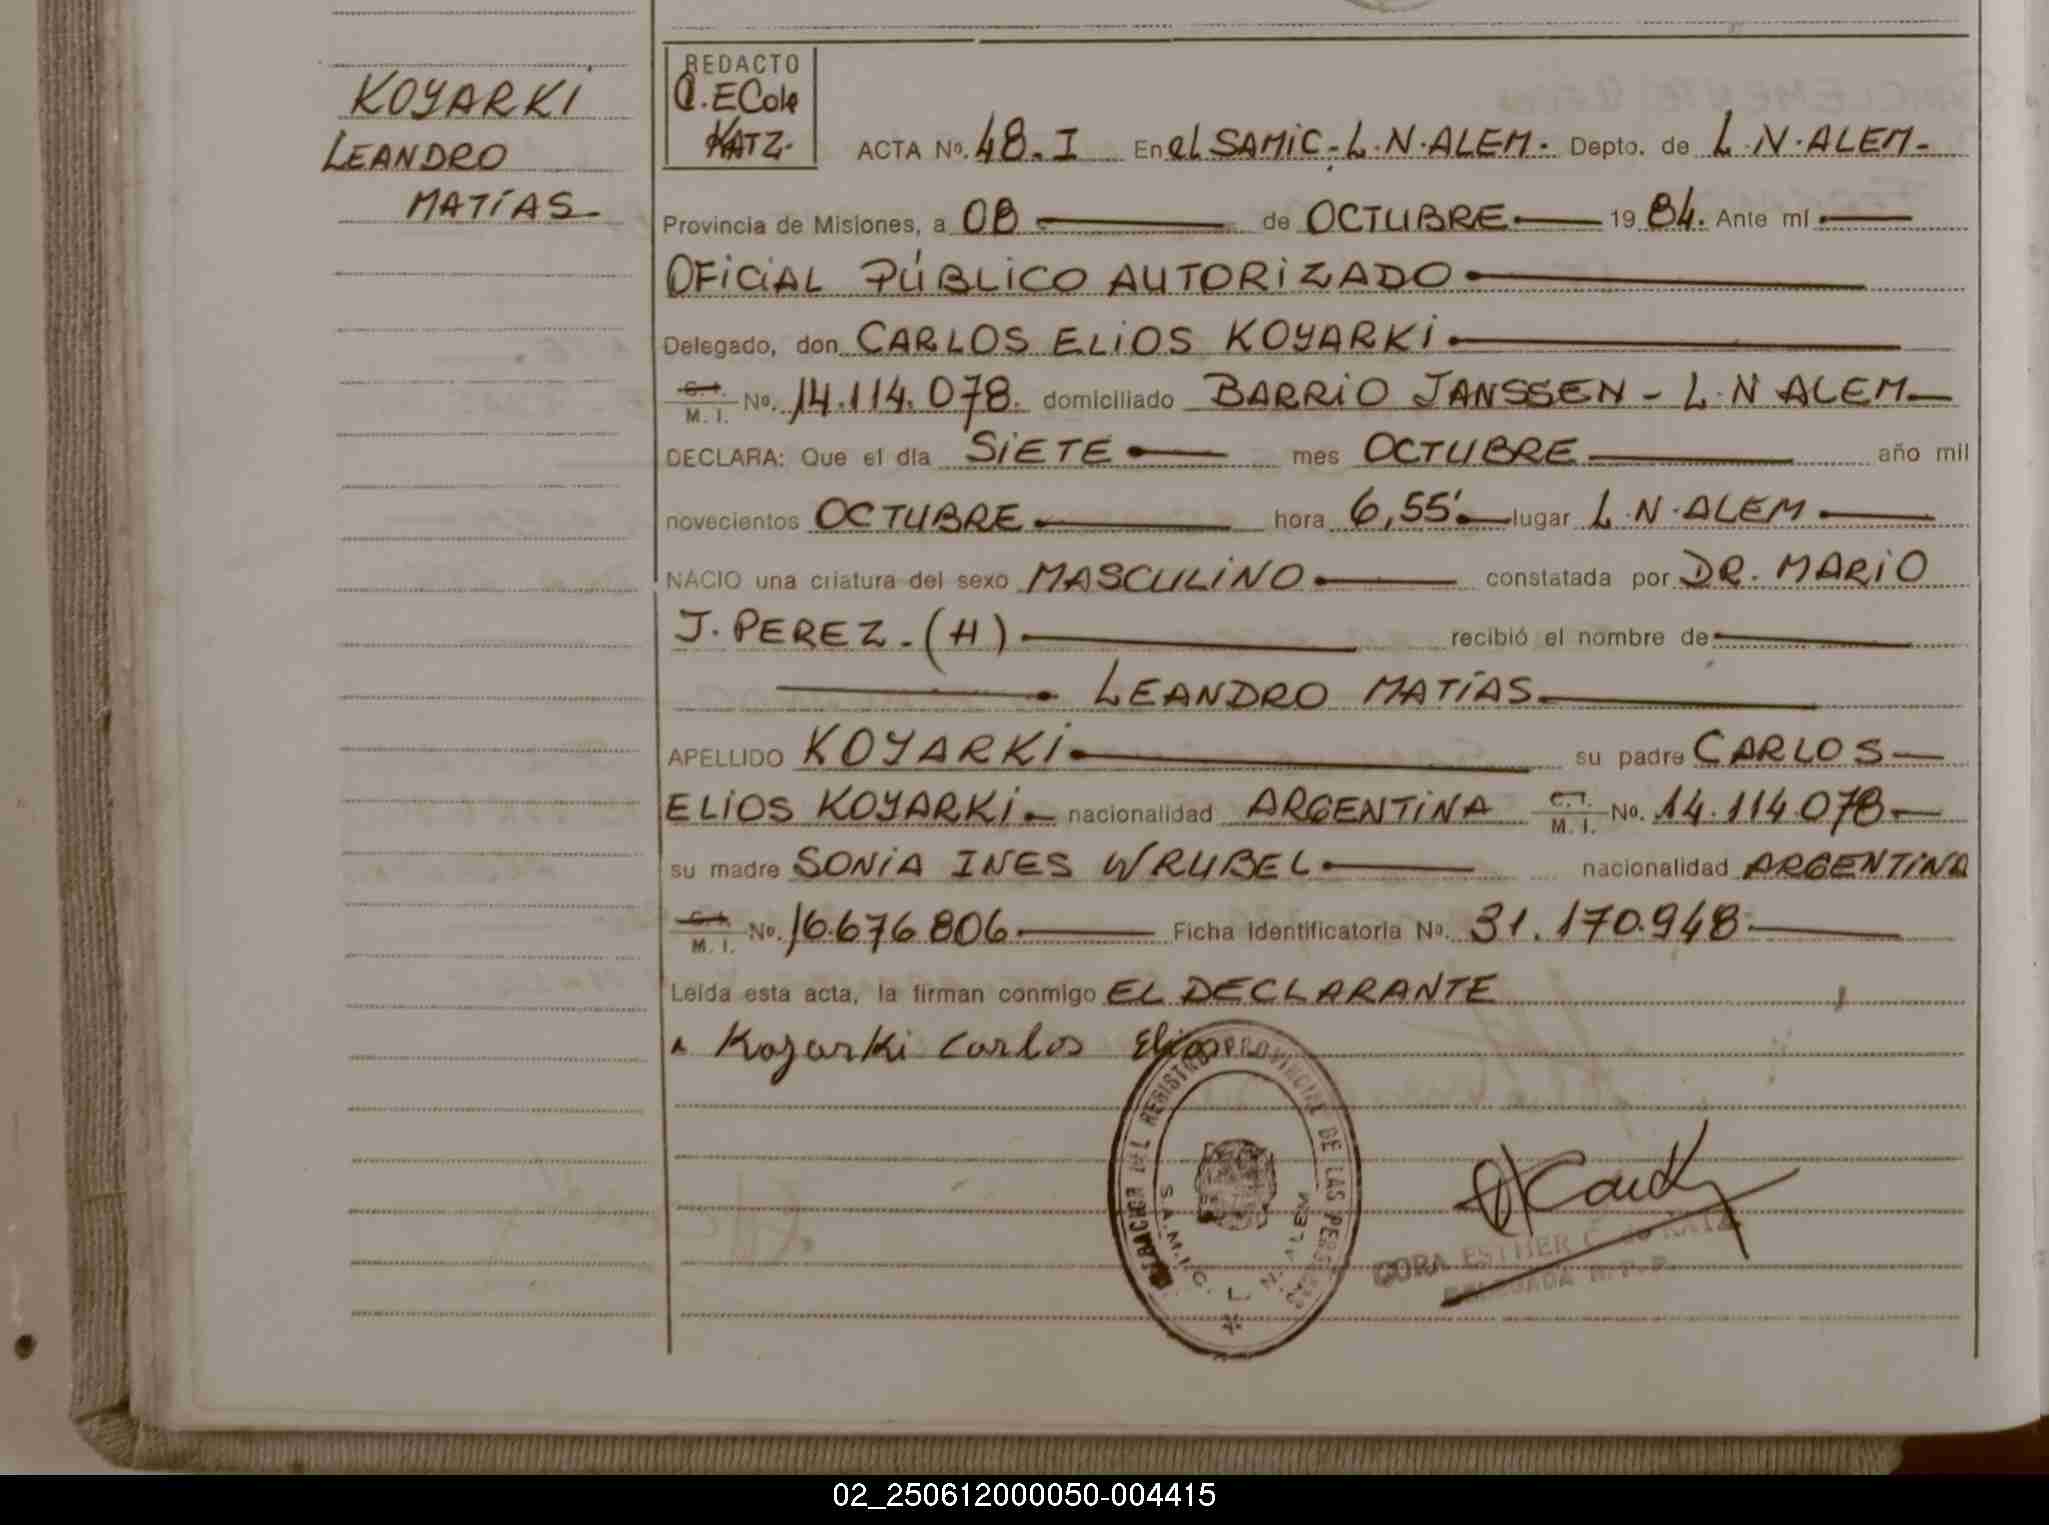 KOYARKI
LEANDRO
MATÍAS
REDACTO
KATZ.
ACTA Nº. 48. I En el SAMIC - L. N. ALEM. Depto. de L. N. ALEM.
Provincia de Misiones, a 08 de OCTUBRE 19 84. Ante mí
OFICIAL PÚBLICO AUTORIZADO
Delegado, don CARLOS ELIOS KOYARKI
C. I. M. I. Nº. 14.114.078. domiciliado BARRIO JANSSEN - L. N ALEM
DECLARA: Que el día SIETE mes OCTUBRE año mil
novecientos OCTUBRE hora 6,55' lugar L. N. ALEM
NACIO una criatura del sexo MASCULINO constatada por DR. MARIO
J. PEREZ. (H) recibió el nombre de
LEANDRO MATÍAS
APELLIDO KOYARKI su padre CARLOS
ELIOS KOYARKI nacionalidad ARGENTINA C. I. M. I. Nº. 14.114.078
su madre SONIA INES WRUBEL nacionalidad ARGENTINA
C. I. M. I. Nº. 16.676 806 Ficha Identificatoria Nº. 31.170.948.
Leída esta acta, la firman conmigo EL DECLARANTE
Koyarki Carlos Elios
REGISTRO PROVINCIAL DE LAS PERSONAS
S.A.M.I.C. L. N. ALEM
ESTHER C. de KATZ
DELEGADA R. P. P.
02_250612000050-004415